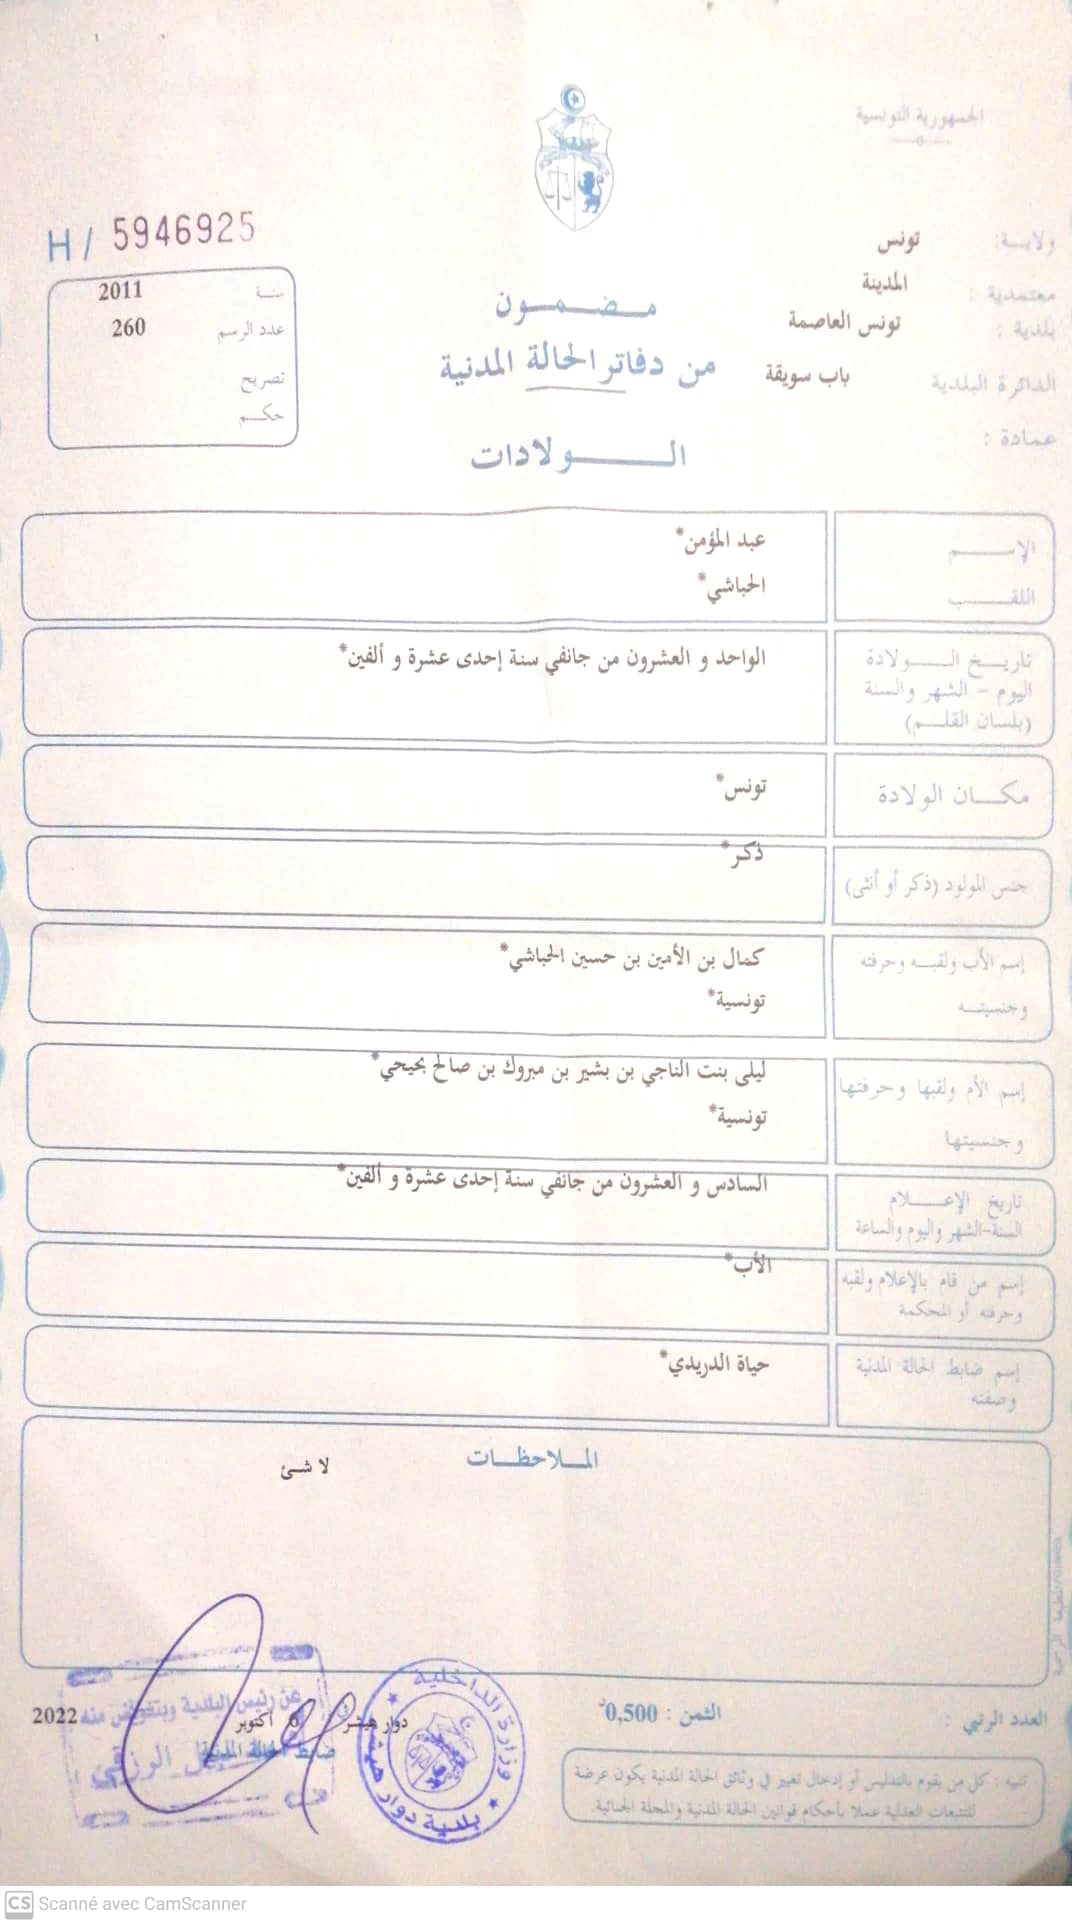 الجمهورية التونسية
H/ 5946925
ولاية: تونس
معتمدية : المدينة
بلدية : تونس العاصمة
الدائرة البلدية باب سويقة
عمادة :
سنة 2011
عدد الرسم 260
تصريح
حكم
مضمون
من دفاتر الحالة المدنية
الولادات
الإسم عبد المؤمن*
اللقب الحباشي*
تاريخ الولادة الواحد و العشرون من جانفي سنة إحدى عشرة و ألفين*
اليوم - الشهر والسنة
(بلسان القلم)
مكان الولادة تونس*
جنس المولود (ذكر أو أنثى) ذكر*
إسم الأب ولقبه وحرفته كمال بن الأمين بن حسين الحباشي*
وجنسيته تونسية*
إسم الأم ولقبها وحرفتها ليلى بنت الناجي بن بشير بن مبروك بن صالح بحيحي*
وجنسيتها تونسية*
تاريخ الإعلام السادس و العشرون من جانفي سنة إحدى عشرة و ألفين*
السنة-الشهر واليوم والساعة
إسم من قام بالإعلام ولقبه الأب*
وحرفته أو المحكمة
إسم ضابط الحالة المدنية حياة الدريدي*
وصفته
الملاحظات
لا شئ
العدد الرتبي :
الثمن : 0,500د
دوار هيشر في 6 أكتوبر 2022
ضابط الحالة المدنية
عن رئيس البلدية وبتفويض منه
الرزقي
وزارة الداخلية
بلدية دوار هيشر
تنبيه : كل من يقوم بالتدليس أو إدخال تغيير في وثائق الحالة المدنية يكون عرضة
للتتبعات العدلية عملا بأحكام قوانين الحالة المدنية والمجلة الجنائية.
CS Scanné avec CamScanner